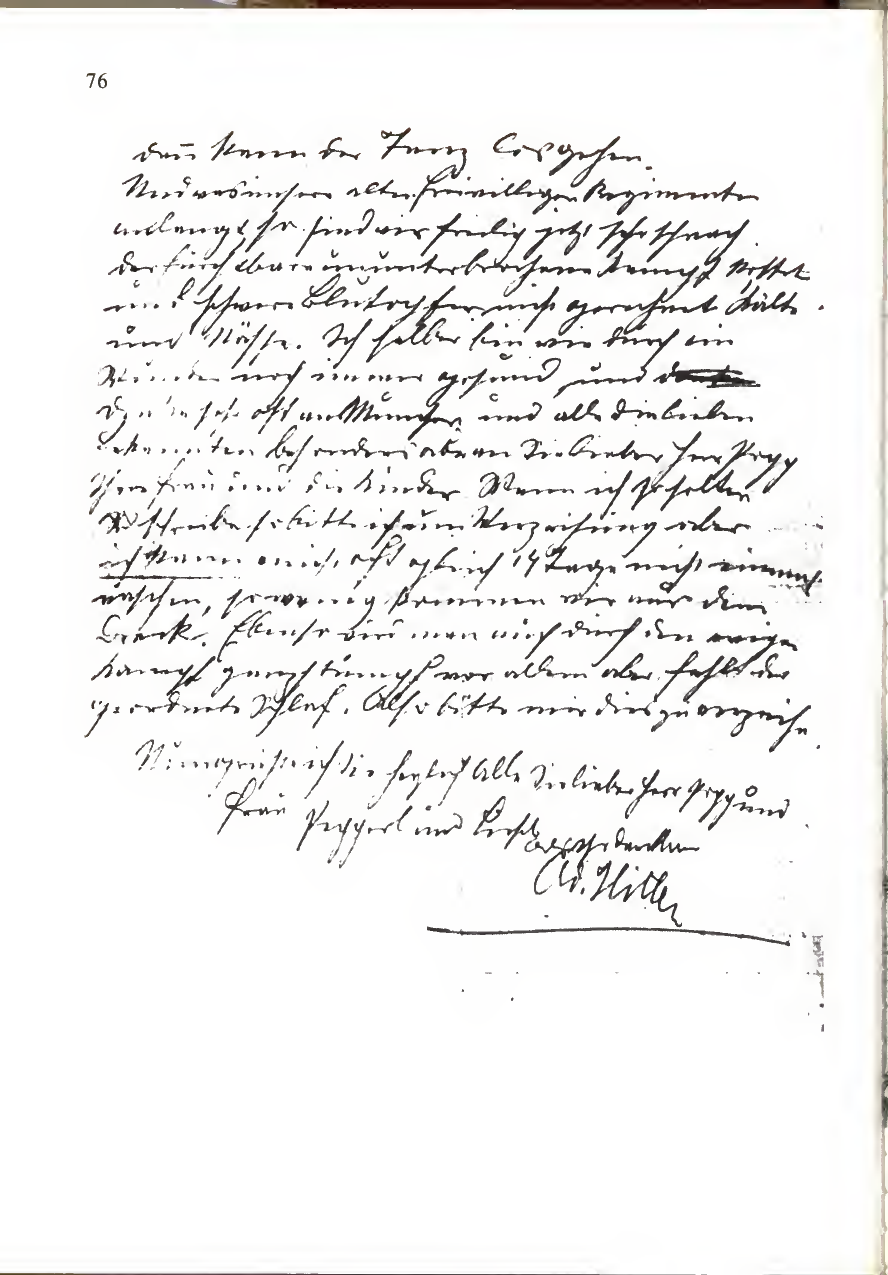 76
dan̄ kann der Tanz losgehen.
Und was unsere alten freiwilligen Regimenter
anlangt, so sind wir freilich jetzt sehr schwach
der furchtbare ununterbrochene Kampf kostet
und schwere Blutopfer nicht gerechnet Kälte
und Nässe. Ich selber bin wie durch ein
Wunder noch immer gesund, und
denke sehr oft an München, und alle die lieben
Bekannten besonders aber an Sie lieber Herr Popp
Ihre Frau und die Kinder. Wenn ich so selten
schreibe so bitte ich um Verzeihung aber
ich kann mich oft gleich 14 Tage nicht einmal
waschen, so wenig kommen wir aus dem
Dreck. Ebenso wird man auch durch den ewigen
Kampf ganz stumpf vor allem aber fehlt der
geordnete Schlaf. Also bitte mir dies zu verzeihn.
Nun grüße ich Sie herzlich Alle Sie lieber Herr Popp und
Frau Pepperl und Liesl
Ad. Hitler